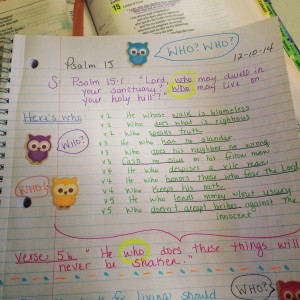 WHO? WHO?
Psalm 15
12-10-14
S: Psalm 15:1 "Lord, who may dwell in
your sanctuary? Who may live on
your holy hill?"
Here's who
WHO?
WHO?
v2 He whose walk is blameless
v2 Who does what is righteous
v2 Who speaks truth
v3 He who has no slander
v3 Who does his neighbor no wrong
v3 Casts no slur on his fellow man
v4 Who despises a vile man
v4 Who honors those who fear the Lord
v4 Who keeps his oath
v5 Who lends money without usury
v5 Who doesn't accept bribes against the
innocent
Verse: 5b "He who does these things will
never be shaken."
WHO?
for living should